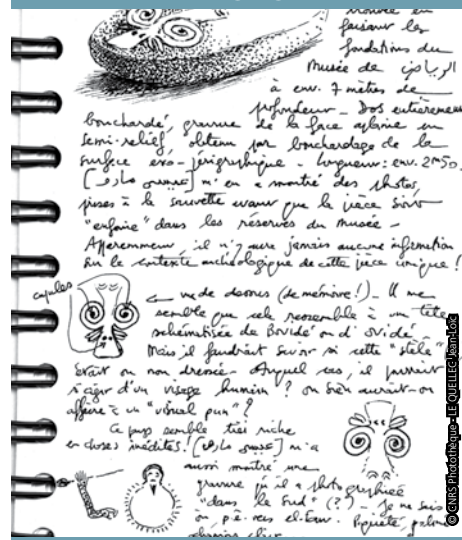 trouvée en
faisant les
fondations du
Musée de الرياض
à env. 7 mètres de
profondeur _ Dos entièrement
bouchardé, gravure de la face aplanie en
semi-relief, obtenu par bouchardage de la
surface exo-périgraphique. Longueur: env. 2m50.
m'en a montré des photos,
prises à la sauvette avant que la pièce soit
"enfouie" dans les réserves du musée _
Apparemment, il n'y aura jamais aucune information
sur le contexte archéologique de cette pièce unique !
cupules
vue de dessus (de mémoire!) _ Il me
semble que cela ressemble à une tête
schématisée de Bovidé ou d'ovidé.
Mais il faudrait savoir si cette "stèle"
était ou non dressée _ Auquel cas, il pourrait
s'agir d'un visage humain ? ou bien aurait-on
affaire à un "visual pun" ?
Ce pays semble très riche
en choses inédites! m'a
aussi montré une
gravure qu'il a photographiée
"dans le Sud" (?) _ Je ne sais
où, p.ê. vers
© CNRS Photothèque - LE QUELLEC Jean-Loïc